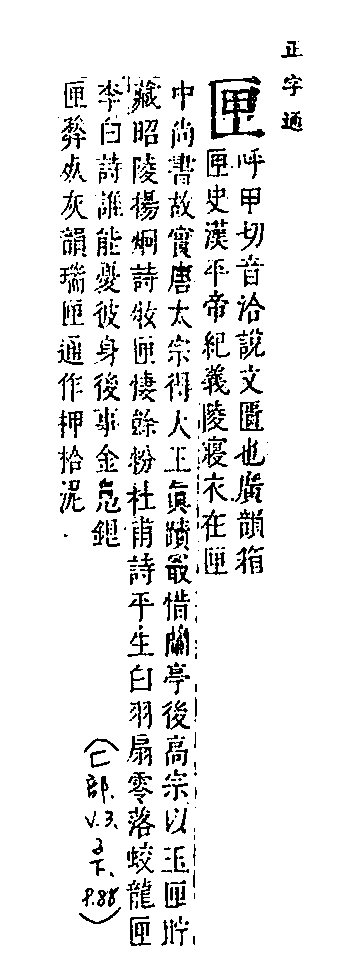 正字通
匣
呼甲切音洽說文匱也廣韻箱
匣史漢平帝紀義陵寢衣在匣
中尚書故實唐太宗得大王真蹟最惜蘭亭後高宗以玉匣貯
藏昭陵楊炯詩妝匣悽餘粉杜甫詩平生白羽扇零落蛟龍匣
李白詩誰能憂彼身後事金鳧
匣弊灰韻瑞匣通作押拾泥
(匚部.
V.3.
3下.
P.88)